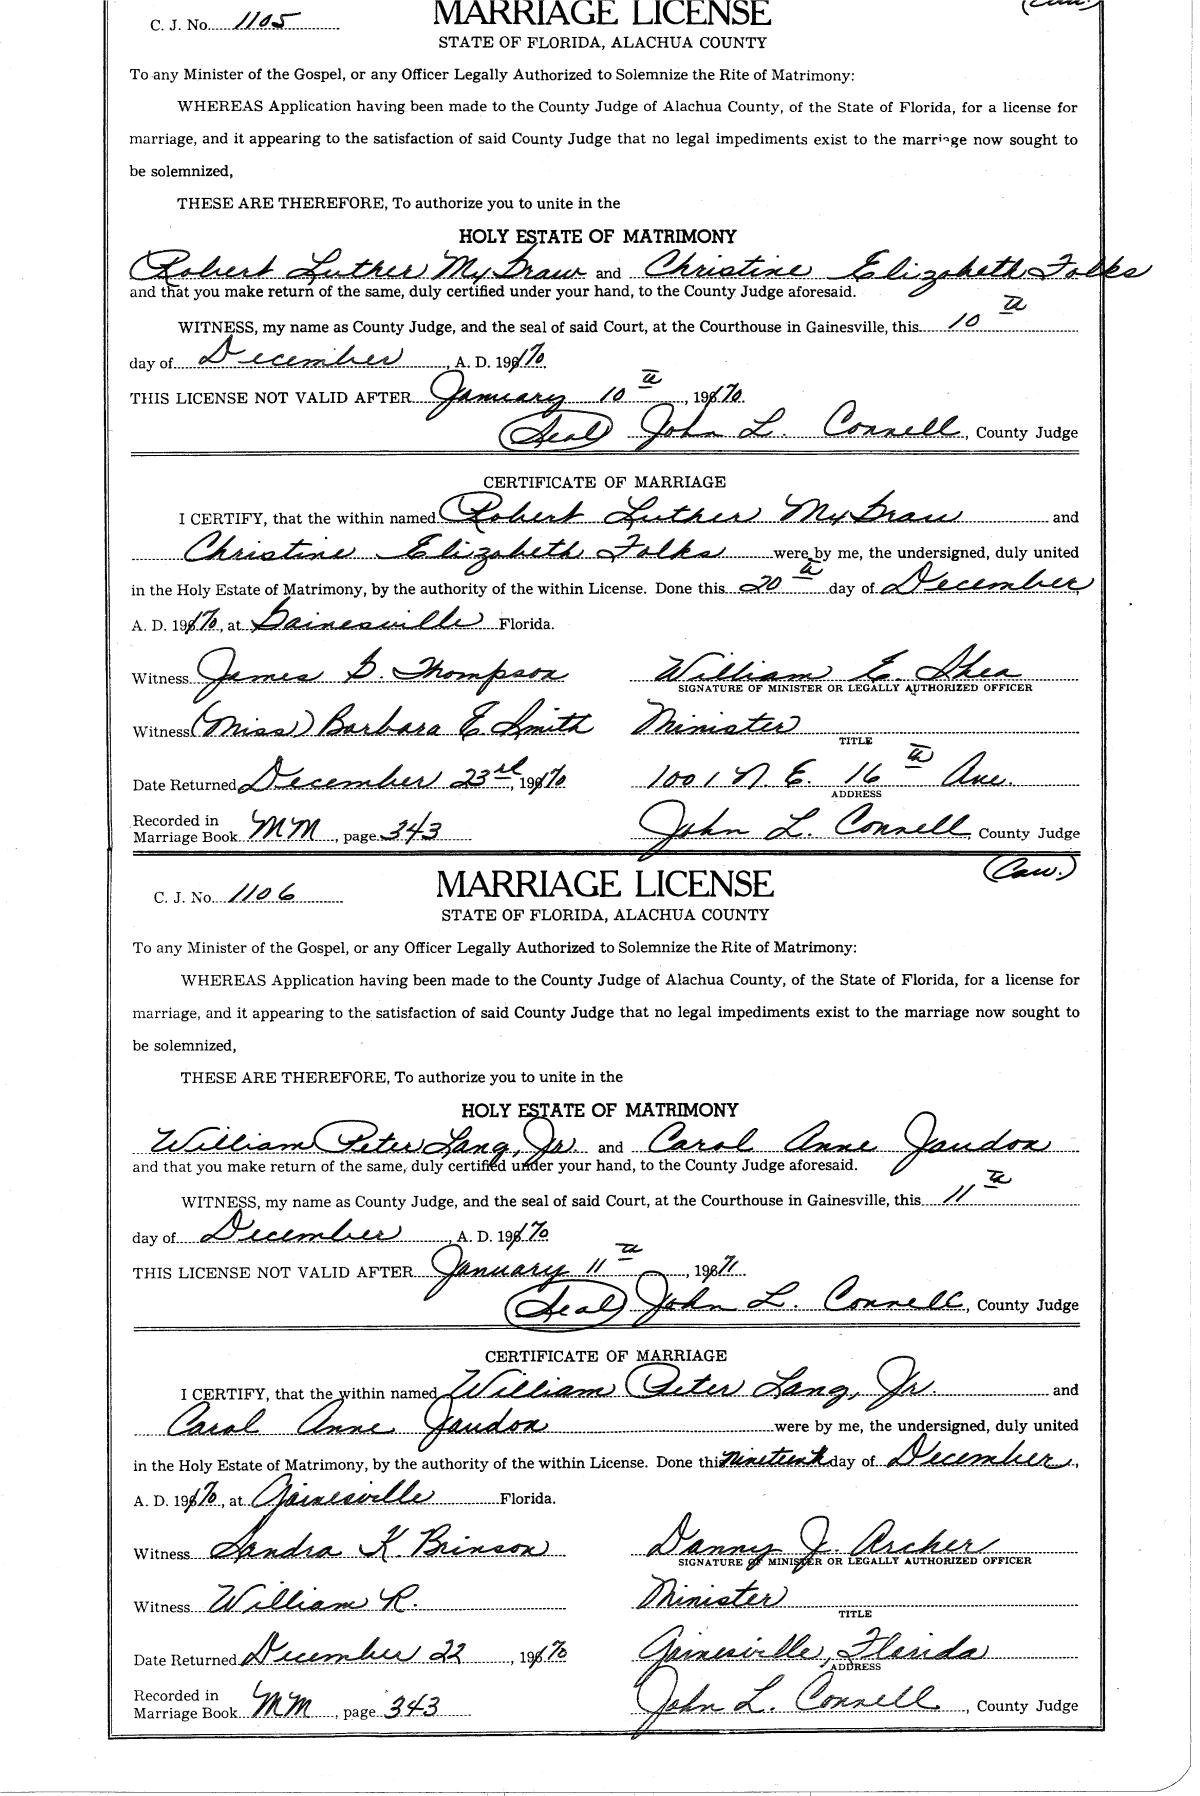 C. J. No. 1105
MARRIAGE LICENSE
STATE OF FLORIDA, ALACHUA COUNTY
To any Minister of the Gospel, or any Officer Legally Authorized to Solemnize the Rite of Matrimony:
WHEREAS Application having been made to the County Judge of Alachua County, of the State of Florida, for a license for
marriage, and it appearing to the satisfaction of said County Judge that no legal impediments exist to the marriage now sought to
be solemnized,
THESE ARE THEREFORE, To authorize you to unite in the
HOLY ESTATE OF MATRIMONY
Robert Luther and Christine Elizabeth Folks
and that you make return of the same, duly certified under your hand, to the County Judge aforesaid.
WITNESS, my name as County Judge, and the seal of said Court, at the Courthouse in Gainesville, this 10th
day of December, A. D. 1970
THIS LICENSE NOT VALID AFTER January 10th, 1970
(Seal) John L. Connell, County Judge
CERTIFICATE OF MARRIAGE
I CERTIFY, that the within named Robert Luther and
Christine Elizabeth Folks were by me, the undersigned, duly united
in the Holy Estate of Matrimony, by the authority of the within License. Done this 20th day of December
A. D. 1970, at Gainesville Florida.
Witness James G. Thompson William E. Shea
SIGNATURE OF MINISTER OR LEGALLY AUTHORIZED OFFICER
Witness (Miss) Barbara E Smith Minister
TITLE
Date Returned December 23rd, 1970 1001 N. E. 16th Ave.
ADDRESS
Recorded in
Marriage Book MM, page 343 John L. Connell, County Judge
(Caw.)
C. J. No. 1106
MARRIAGE LICENSE
STATE OF FLORIDA, ALACHUA COUNTY
To any Minister of the Gospel, or any Officer Legally Authorized to Solemnize the Rite of Matrimony:
WHEREAS Application having been made to the County Judge of Alachua County, of the State of Florida, for a license for
marriage, and it appearing to the satisfaction of said County Judge that no legal impediments exist to the marriage now sought to
be solemnized,
THESE ARE THEREFORE, To authorize you to unite in the
HOLY ESTATE OF MATRIMONY
William Peter Lang, Jr. and Carol Anne Jaudon
and that you make return of the same, duly certified under your hand, to the County Judge aforesaid.
WITNESS, my name as County Judge, and the seal of said Court, at the Courthouse in Gainesville, this 11th
day of December, A. D. 1970
THIS LICENSE NOT VALID AFTER January 11th, 1971
(Seal) John L. Connell, County Judge
CERTIFICATE OF MARRIAGE
I CERTIFY, that the within named William Peter Lang, Jr. and
Carol Anne Jaudon were by me, the undersigned, duly united
in the Holy Estate of Matrimony, by the authority of the within License. Done this nineteenth day of December,
A. D. 1970, at Gainesville Florida.
Witness Sandra K. Brinson Danny J. Archer
SIGNATURE OF MINISTER OR LEGALLY AUTHORIZED OFFICER
Witness William R. Minister
TITLE
Date Returned December 22, 1970 Gainesville, Florida
ADDRESS
Recorded in
Marriage Book MM, page 343 John L. Connell, County Judge